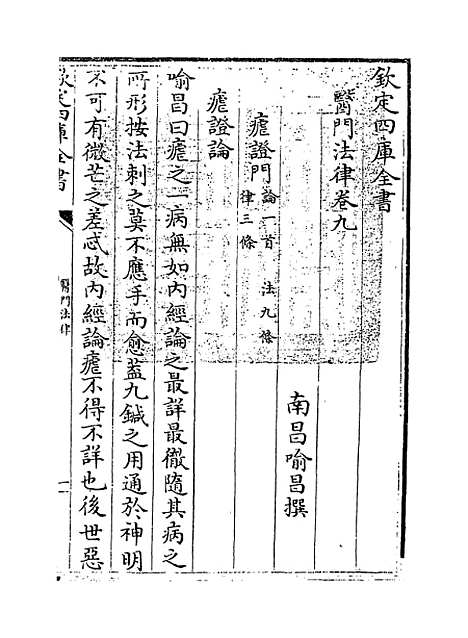 欽定四庫全書
醫門法律卷九
南昌喻昌撰
瘧證門 論一首 法九條
律三條
瘧證論
喻昌曰瘧之一病無如內經論之最詳最徹隨其病之
所形按法刺之莫不應手而愈葢九鍼之用通於神明
不可有微芒之差忒故內經論瘧不得不詳也後世惡
欽定四庫全書
醫門法律
一